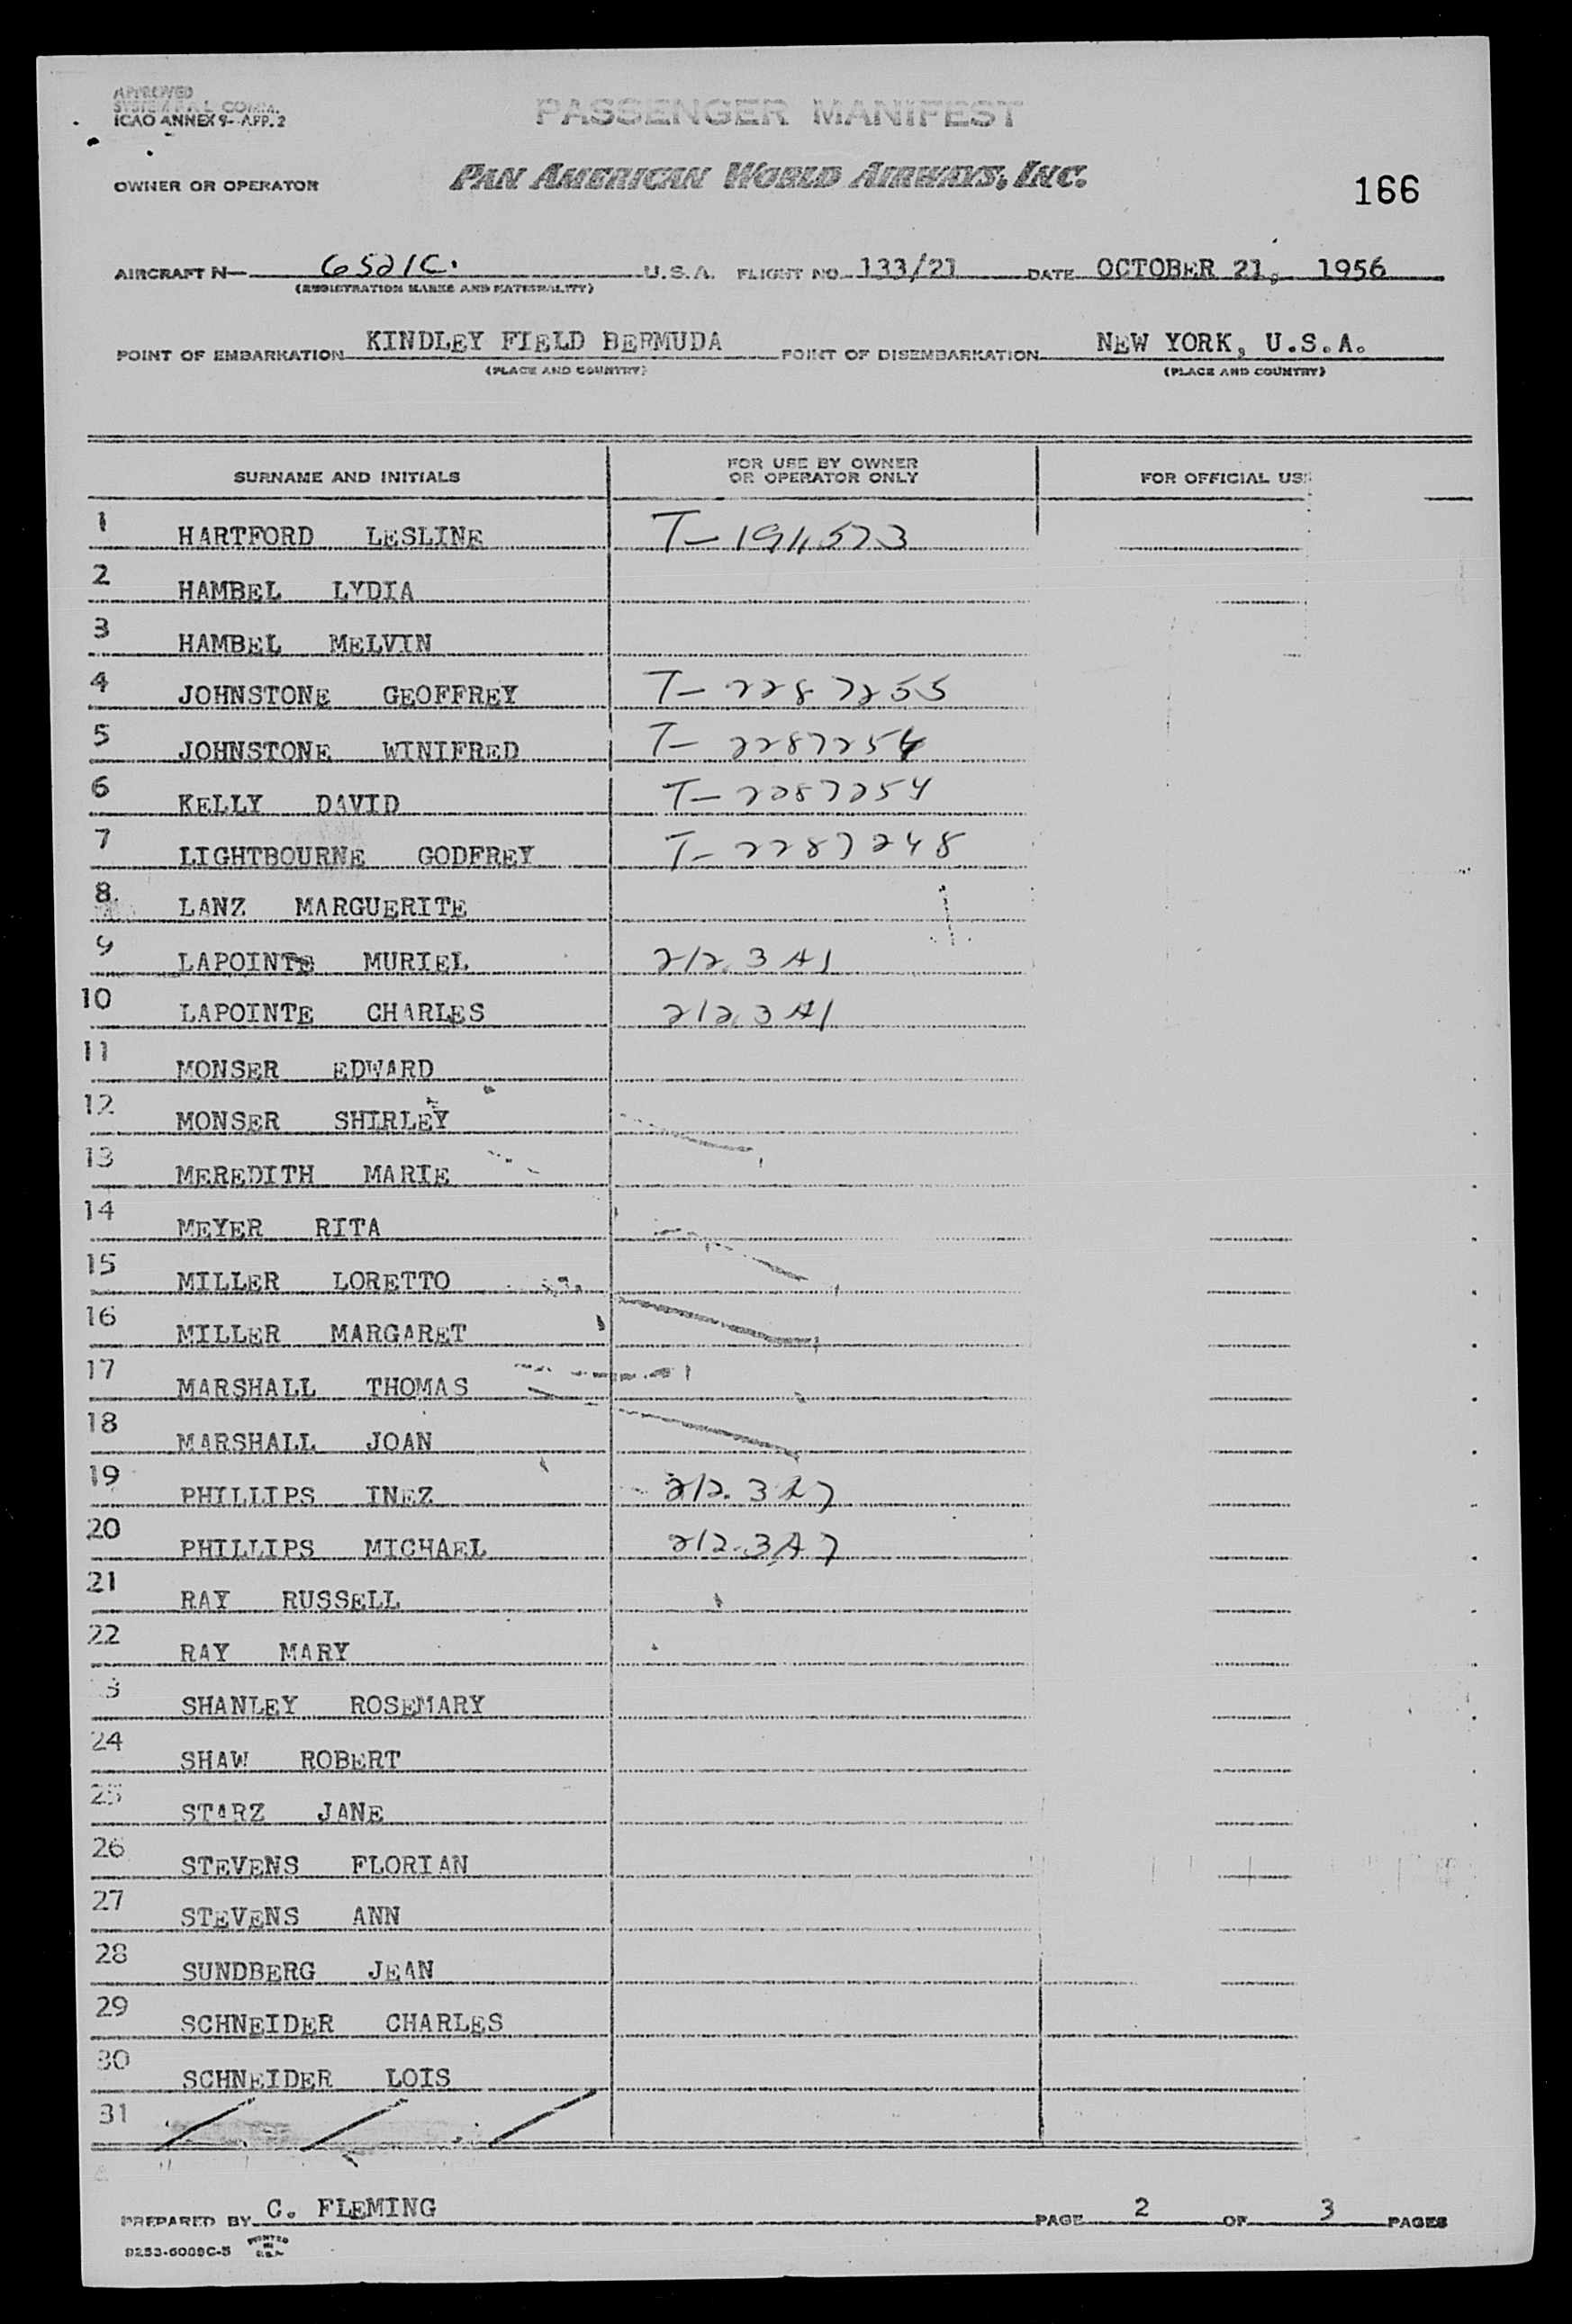 APPROVED
ICAO ANNEX 9-APP. 2
PASSENGER MANIFEST
OWNER OR OPERATOR PAN AMERICAN WORLD AIRWAYS, INC.
166
AIRCRAFT N— 6521C. U.S.A. FLIGHT NO 133/21 DATE OCTOBER 21, 1956
(REGISTRATION MARKS AND NATIONALITY)
POINT OF EMBARKATION KINDLEY FIELD BERMUDA POINT OF DISEMBARKATION NEW YORK, U.S.A.
(PLACE AND COUNTRY) (PLACE AND COUNTRY)
SURNAME AND INITIALS FOR USE BY OWNER OR OPERATOR ONLY FOR OFFICIAL US
1 HARTFORD LESLINE
2 HAMBEL LYDIA
3 HAMBEL MELVIN
4 JOHNSTONE GEOFFREY T-2287255
5 JOHNSTONE WINIFRED
6 KELLY DAVID T-2287254
7 LIGHTBOURNE GODFREY T-2287248
8 LANZ MARGUERITE
9 LAPOINTE MURIEL 212.3 A1
10 LAPOINTE CHARLES 212.3 A1
11 MONSER EDWARD
12 MONSER SHIRLEY
13 MEREDITH MARIE
14 MEYER RITA
15 MILLER LORETTO
16 MILLER MARGARET
17 MARSHALL THOMAS
18 MARSHALL JOAN
19 PHILLIPS INEZ 212.3 A7
20 PHILLIPS MICHAEL 212.3 A7
21 RAY RUSSELL
22 RAY MARY
3 SHANLEY ROSEMARY
24 SHAW ROBERT
25 STARZ JANE
26 STEVENS FLORIAN
27 STEVENS ANN
28 SUNDBERG JEAN
29 SCHNEIDER CHARLES
30 SCHNEIDER LOIS
31
PREPARED BY C. FLEMING PAGE 2 OF 3 PAGES
9253-6009C-5 PRINTED IN U.S.A.